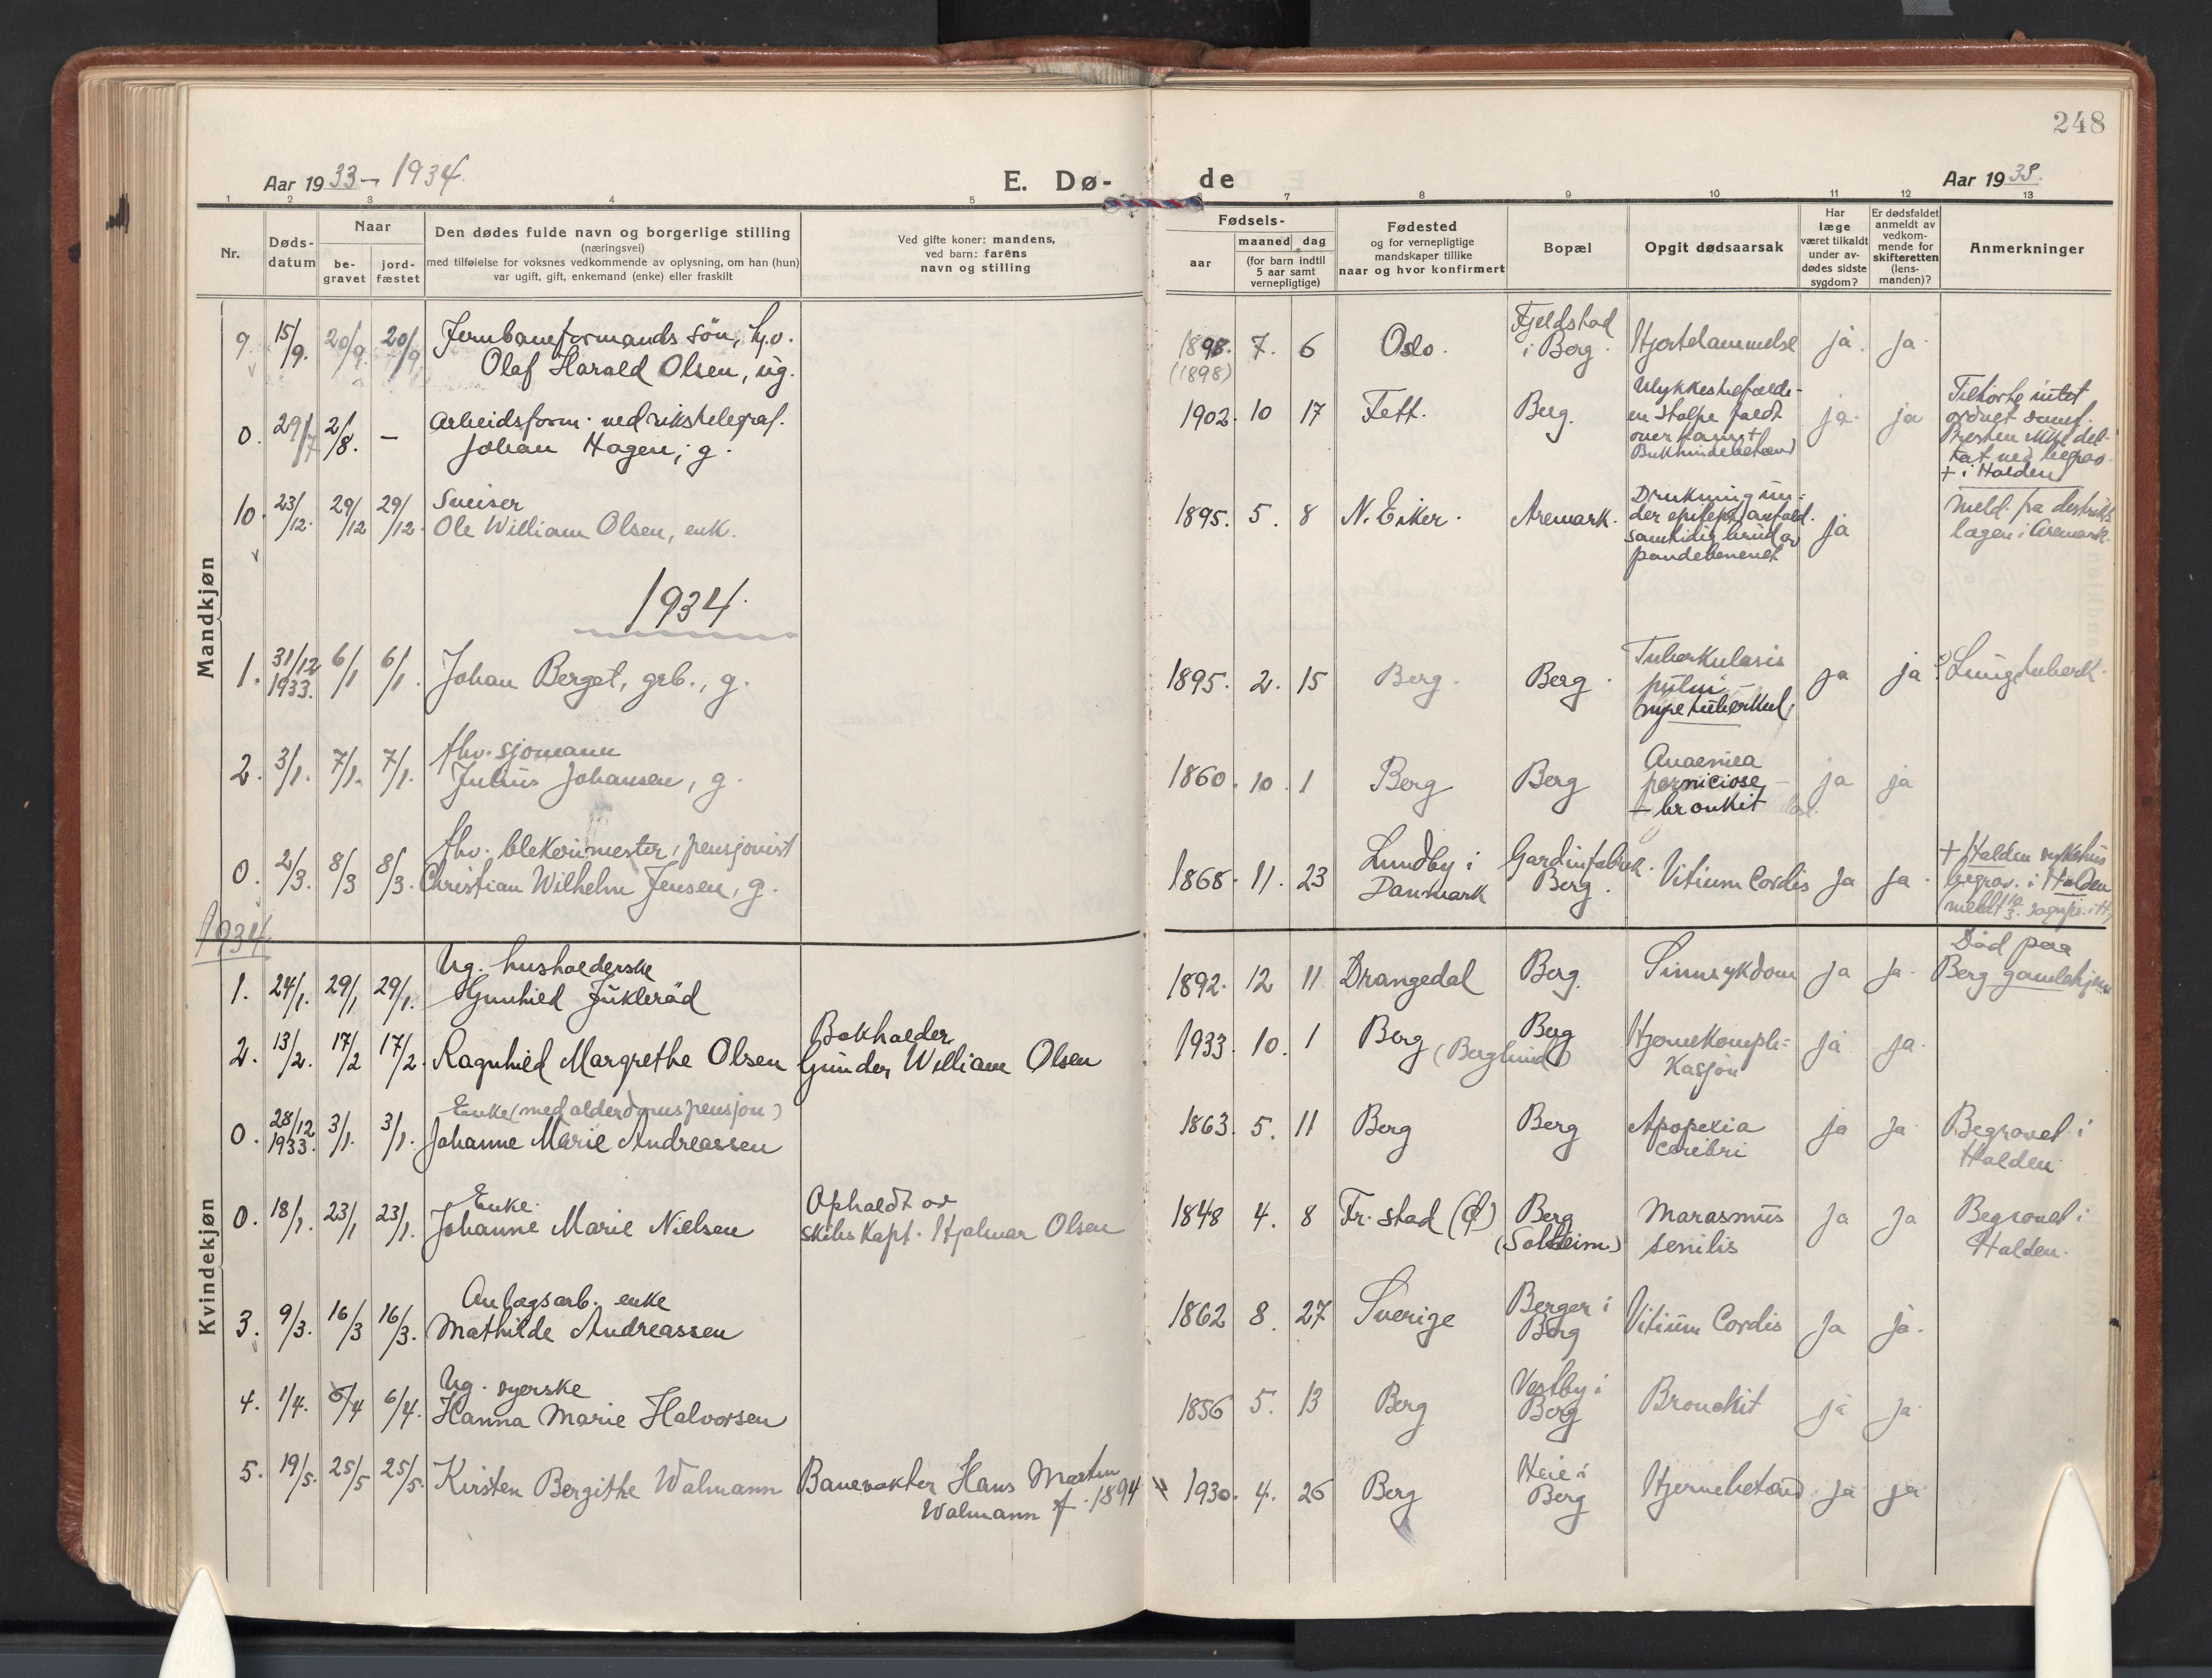 248
Aar 1933 - 1934.
E. Dø-
de
Aar 1933.
1 2 3 4 5 6 7 8 9 10 11 12 13
Nr.
Døds-
datum
Naar
be-
gravet
jord-
fæstet
Den dødes fulde navn og borgerlige stilling
(næringsvei)
med tilføielse for voksnes vedkommende av oplysning, om han (hun)
var ugift, gift, enkemand (enke) eller fraskilt
Ved gifte koner: mandens,
ved barn: farens
navn og stilling
Fødsels-
aar
maaned dag
(for barn indtil
5 aar samt
vernepligtige)
Fødested
og for vernepligtige
mandskaper tillike
naar og hvor konfirmert
Bopæl
Opgit dødsaarsak
Har
læge
været tilkaldt
under av-
dødes sidste
sygdom?
Er dødsfaldet
anmeldt av
vedkom-
mende for
skifteretten
(lens-
manden)?
Anmerkninger
Mandkjøn
9. 15/9. 20/9. 20/9 Jernbaneformands søn,
Olaf Harald Olsen, ug.
1898. 7. 6 Oslo. Fjeldstad
i Berg. Hjertelammelse ja. ja.
(1898)
0. 29/7 2/8. — Arbeidsform. ved rikstelegraf.
Johan Hagen, g.
1902. 10 17 Fett. Berg. Ulykkestilfælde-
en stolpe faldt
over ham +
ja. ja
Tilhørte intet
ordnet samf.
Presten ikke del-
tat ved begrav.
+ i Halden
10. 23/12. 29/12 29/12. Sveiser
Ole William Olsen, enk.
1895. 5. 8 N. Eiker. Aremark. Drukning un-
der epilept. anfald.
samtidig brud av
pandebenenet
ja
meld. fra distrikts
lægen i Aremark.
1934.
1. 31/12 1933. 6/1 6/1. Johan Berget, grb., g.
1895. 2. 15 Berg. Berg. Tuberkulosis
pulm. —
nyretuberkul. ja ja Lungetuberk.
2. 3/1. 7/1. 7/1. Fhv. sjømann
Julius Johansen, g.
1860. 10. 1 Berg Berg Anaemia
perniciose —
— bronkit ja ja
0. 2/3. 8/3 8/3. Fhv. blekerimester, pensjonist
Christian Wilhelm Jensen, g.
1868. 11. 23 Lundby i
Danmark Gardinfabrik.
Berg. Vitium Cordis ja ja.
+ Halden sykehus
begrav. i Halden
1934.
Kvindekjøn
1. 24/1. 29/1 29/1. Ug. husholderske
Gunhild Jukleråd
1892. 12 11 Drangedal Berg. Sinnsykdom ja ja.
Død paa
Berg gamlehjem
2. 13/2. 17/2 17/2. Ragnhild Margrethe Olsen
Bokholder
Gunder William Olsen
1933. 10. 1 Berg (Berglund) Berg Hjernekompli-
kasjon ja ja.
0. 28/12 1933. 3/1. 3/1. Enke (med alderdomspensjon)
Johanne Marie Andreassen
1863. 5. 11 Berg Berg Apopexia
cerebri ja ja. Begravet i
Halden.
0. 18/1. 23/1 23/1. Enke.
Johanne Marie Nielsen
Opholdt av
skibskapt. Hjalmar Olsen
1848 4. 8 Fr. stad Berg
(Solheim) Marasmus
senilis ja ja Begravet i
Halden.
3. 9/3. 16/3 16/3. Anlægsarb. enke
Mathilde Andreassen
1862 8. 27 Sverige Berger i
Berg Vitium Cordis ja ja.
4. 1/4. 6/4 6/4. Ug. syerske
Hanna Marie Halvorsen
1856 5. 13 Berg Vestby i
Berg Bronchit ja ja.
5. 19/5. 25/5 25/5. Kirsten Bergithe Walmann
Banevakter Hans Martin
Walmann f. 1894
1930. 4. 26 Berg Heie i
Berg Hjernebetænd ja ja